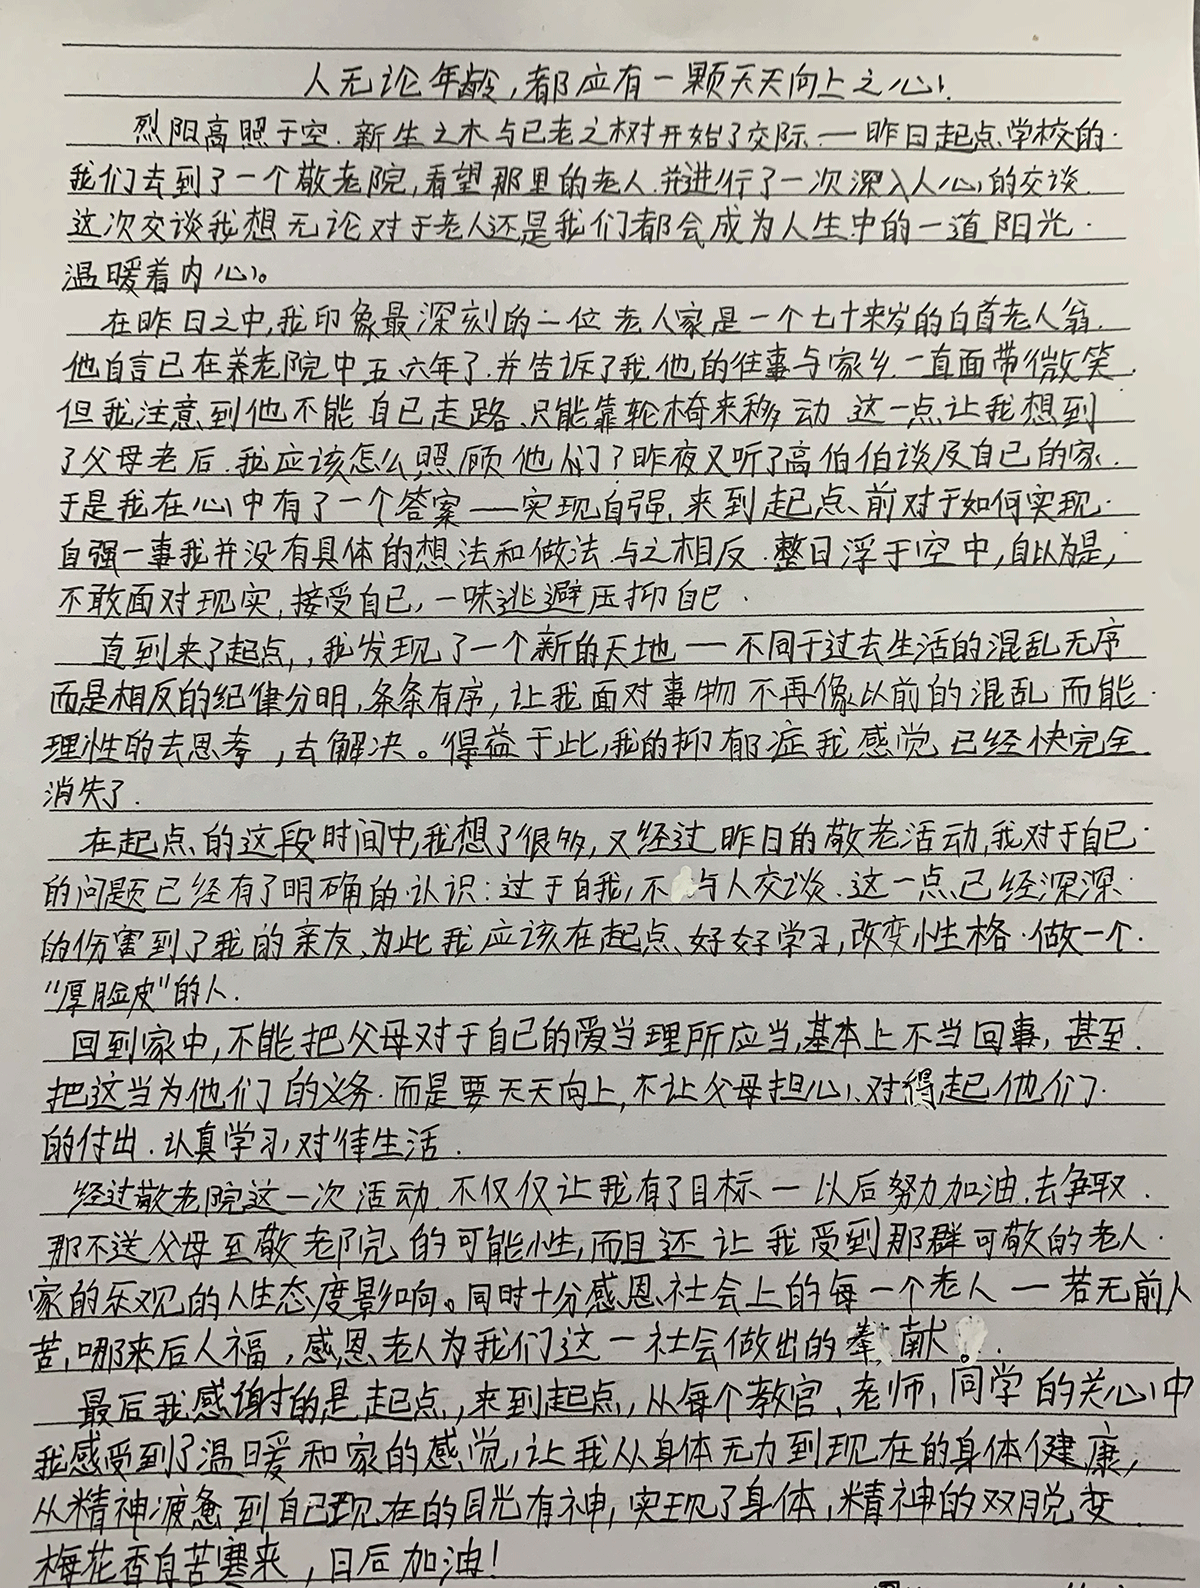 人无论年龄，都应有一颗天天向上之心！
烈阳高照于空.新生之木与已老之树开始了交际 — 昨日起点学校的
我们去到了一个敬老院，看望那里的老人.并进行了一次深入人心的交谈.
这次交谈我想无论对于老人还是我们都会成为人生中的一道阳光.
温暖着内心。
在昨日之中，我印象最深刻的一位老人家是一个七十来岁的白首老人翁.
他自言已在养老院中五、六年了.并告诉了我他的往事与家乡.一直面带微笑.
但我注意到他不能自己走路、只能靠轮椅来移动 这一点让我想到
了父母老后.我应该怎么照顾他们？昨夜又听了高伯伯谈及自己的家.
于是我在心中有了一个答案——实现自强.来到起点前对于如何实现
自强一事我并没有具体的想法和做法.与之相反.整日浮于空中，自以为是，
不敢面对现实，接受自己，一味逃避压抑自己.
直到来了起点，，我发现了一个新的天地 — 不同于过去生活的混乱无序
而是相反的纪律分明，条条有序，让我面对事物不再像以前的混乱而能
理性的去思考，去解决。得益于此，我的抑郁症我感觉已经快完全
消失了.
在起点的这段时间中，我想了很多，又经过昨日的敬老活动，我对于自己
的问题已经有了明确的认识：过于自我，不与人交谈.这一点已经深深
的伤害到了我的亲友.为此我应该在起点好好学习，改变性格.做一个
“厚脸皮”的人.
回到家中，不能把父母对于自己的爱当理所应当，基本上不当回事，甚至
把这当为他们的义务.而是要天天向上，不让父母担心、对得起他们
的付出.认真学习，对待生活.
经过敬老院这一次活动.不仅仅让我有了目标 — 以后努力加油.去争取
那不送父母至敬老院的可能性，而且还让我受到那群可敬的老人
家的乐观的人生态度影响。同时十分感恩社会上的每一个老人 — 若无前人
苦，哪来后人福，感恩老人为我们这一社会做出的奉献。
最后我感谢的是起点，来到起点，从每个教官、老师，同学的关心中
我感受到了温暖和家的感觉，让我从身体无力到现在的身体健康，
从精神疲惫到自己现在的目光有神，实现了身体，精神的双脱变.
梅花香自苦寒来，日后加油！